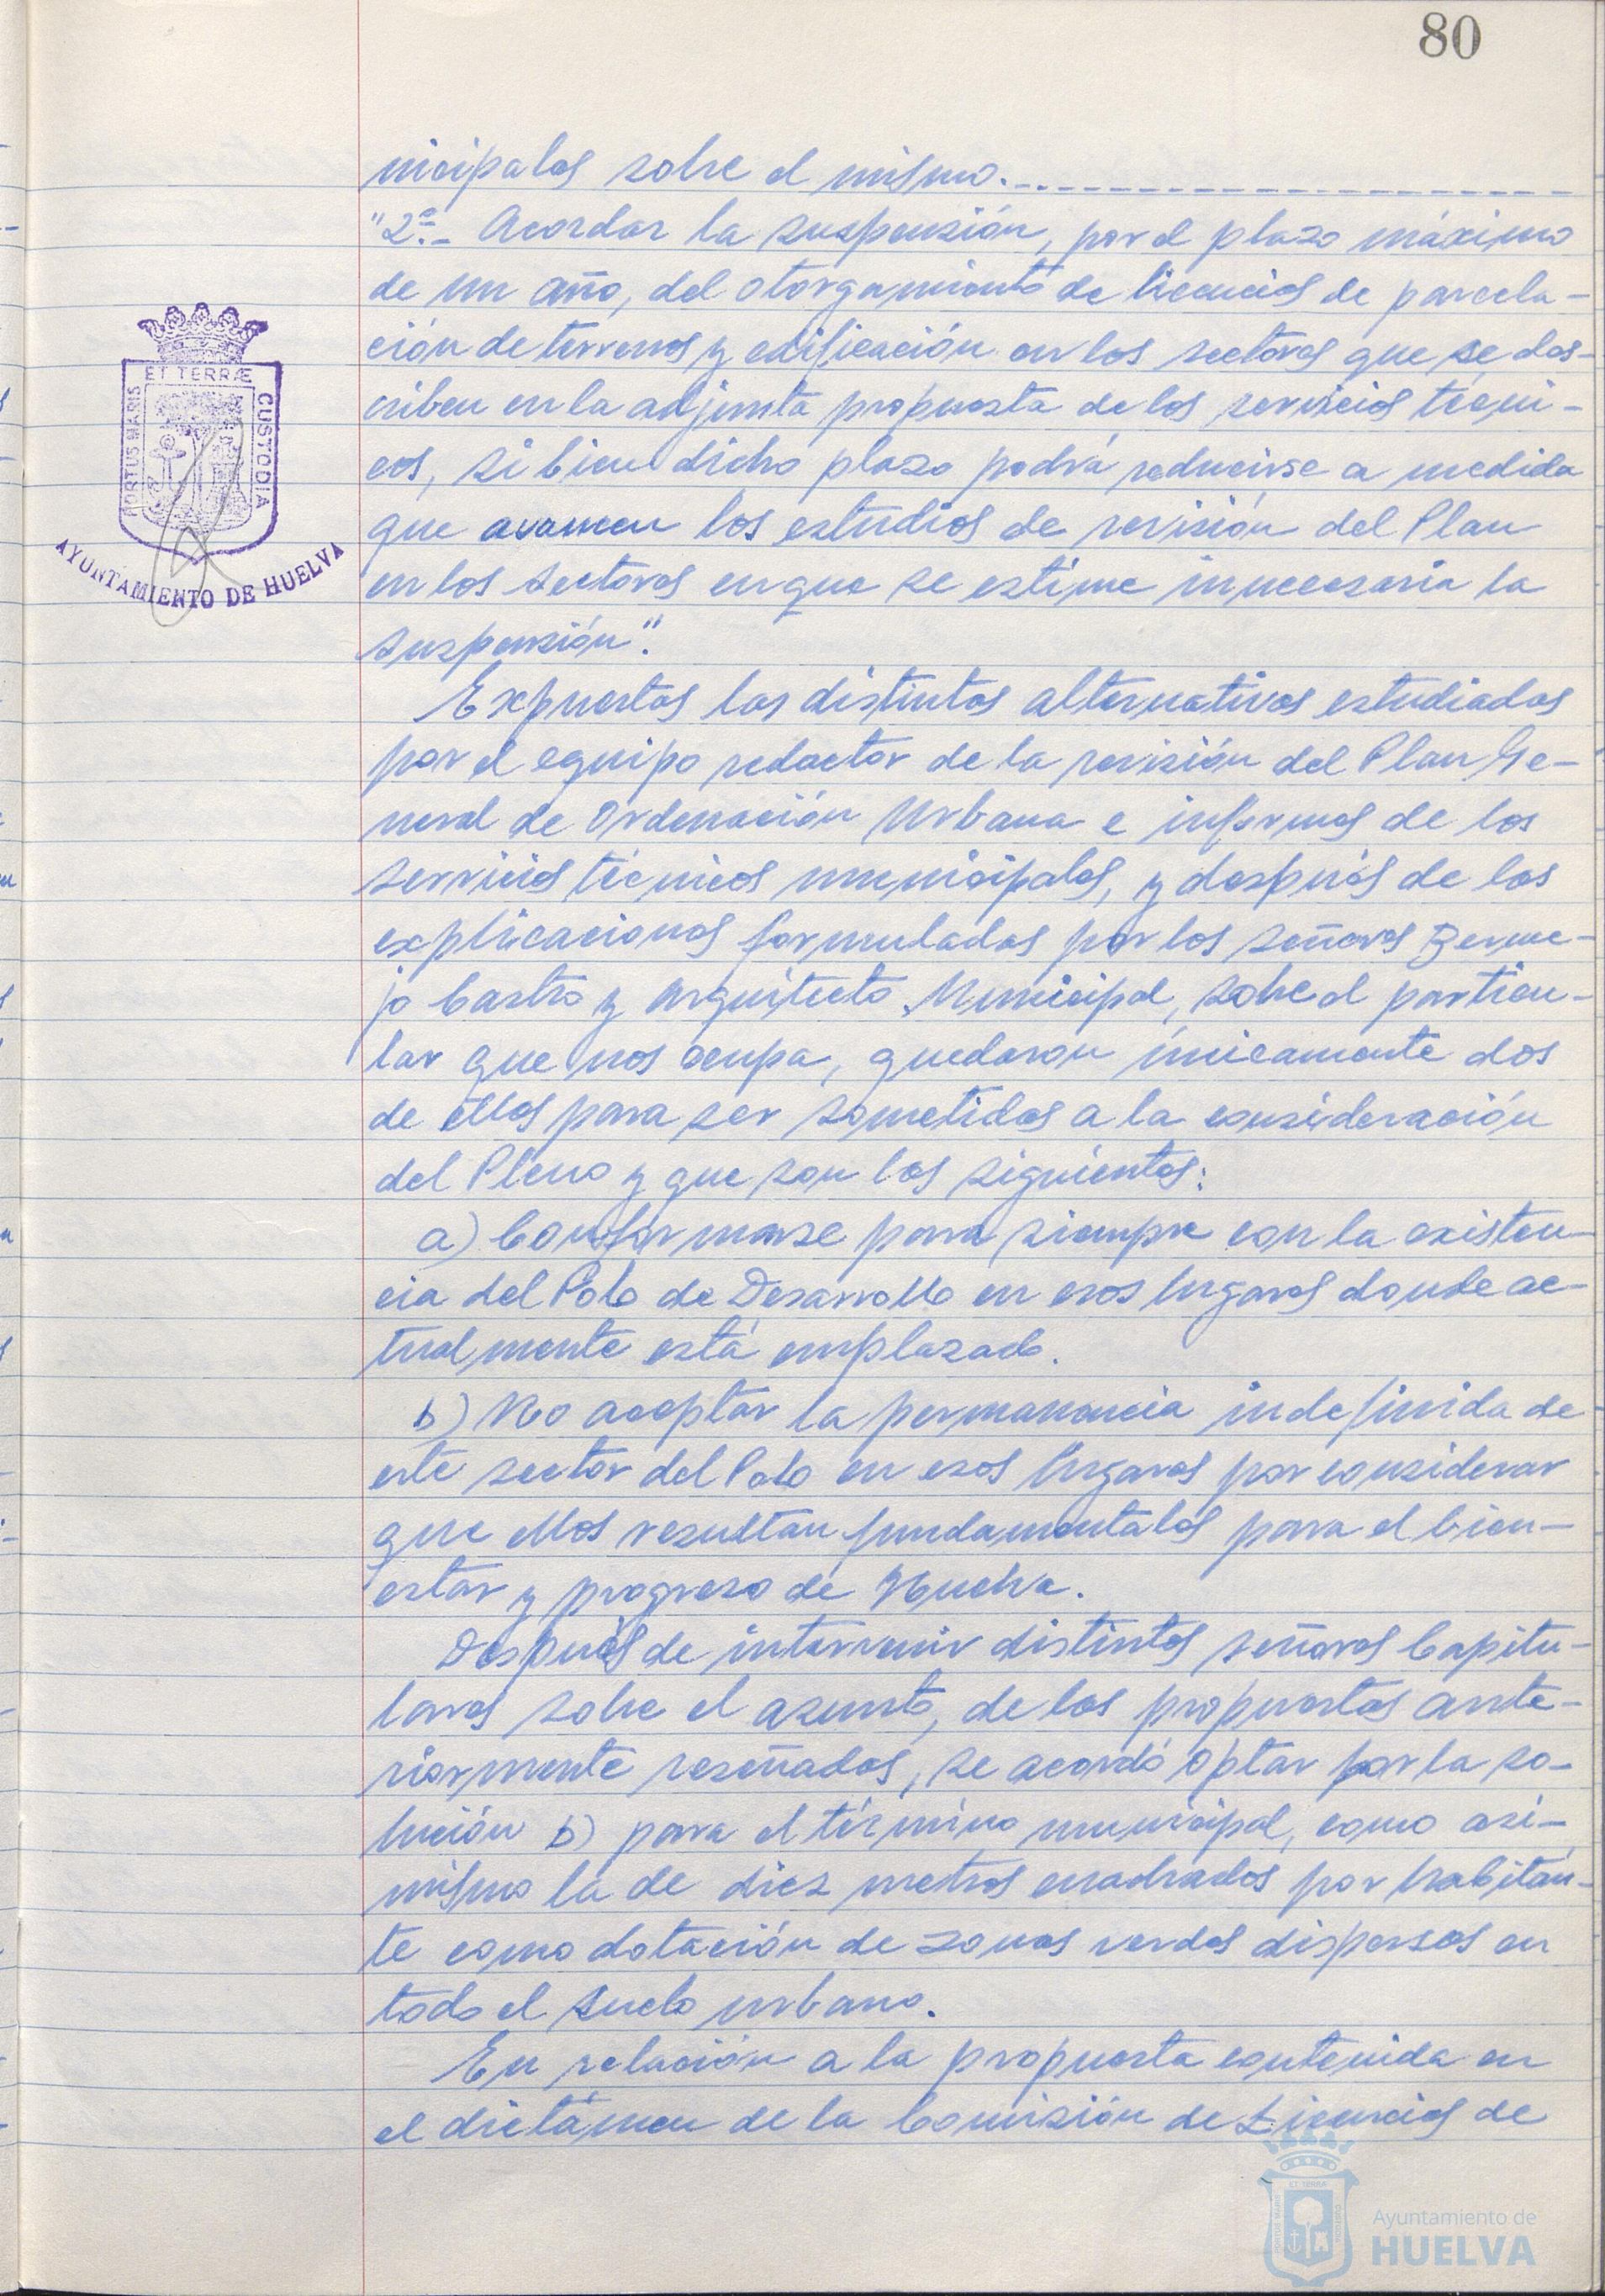 80
nicipales sobre el mismo.
"2º.- Acordar la suspensión, por el plazo máximo
de un año, del otorgamiento de licencias de parcela-
ción de terrenos y edificación en los sectores que se des-
criben en la adjunta propuesta de los servicios técni-
cos, si bien dicho plazo podrá reducirse a medida
que avancen los estudios de revisión del Plan
en los sectores en que se estime innecesaria la
suspensión".
Expuestas las distintas alternativas estudiadas
por el equipo redactor de la revisión del Plan Ge-
neral de Ordenación Urbana e informes de los
servicios técnicos municipales, y después de las
explicaciones formuladas por los señores Berme-
jo Castro y Arquitecto Municipal, sobre el particu-
lar que nos ocupa, quedaron únicamente dos
de ellas para ser sometidas a la consideración
del Pleno y que son las siguientes:
a) Conformarse para siempre con la existen-
cia del Polo de Desarrollo en esos lugares donde ac-
tualmente está emplazado.
b) No aceptar la permanencia indefinida de
este sector del Polo en esos lugares por considerar
que ellos resultan fundamentales para el bien-
estar y progreso de Huelva.
Después de intervenir distintos señores Capitu-
lares sobre el asunto, de las propuestas ante-
riormente reseñadas, se acordó optar por la so-
lución b) para el término municipal, como asi-
mismo la de diez metros cuadrados por habitan-
te como dotación de zonas verdes dispersas en
todo el suelo urbano.
En relación a la propuesta contenida en
el dictámen de la Comisión de Licencias de
PORTUS MARIS
ET TERRÆ
CUSTODIA
AYUNTAMIENTO DE HUELVA
Ayuntamiento de
HUELVA